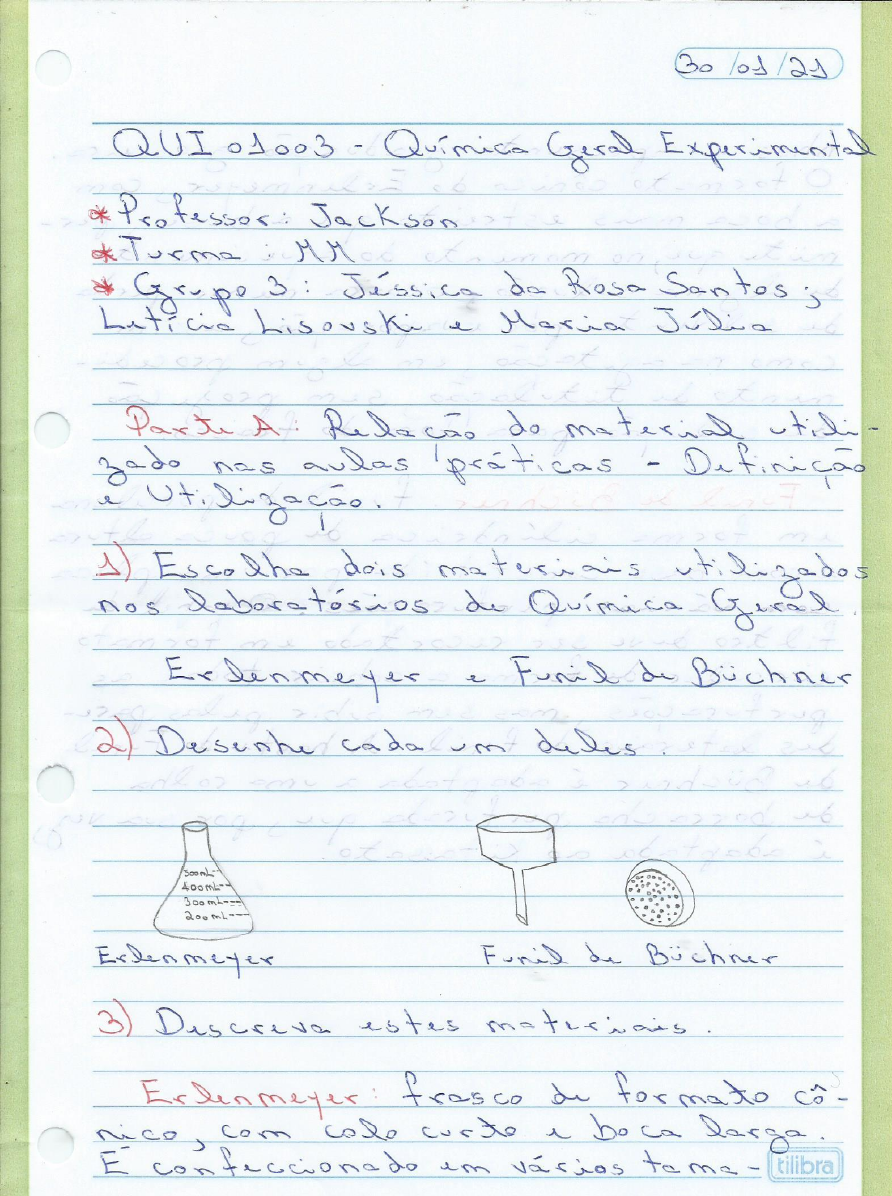 30/01/21
QUI 01003 - Química Geral Experimental
* Professor: Jackson
* Turma: MM
* Grupo 3: Jéssica da Rosa Santos,
Letícia Lisovski e Maria Júlia
Parte A: Relação do material utili-
zado nas aulas práticas - Definição
e Utilização.
1) Escolha dois materiais utilizados
nos laboratórios de Química Geral.
Erlenmeyer e Funil de Büchner
2) Desenhe cada um deles.
500mL
400mL
300mL
200mL
Erlenmeyer Funil de Büchner
3) Descreva estes materiais.
Erlenmeyer: frasco de formato cô-
nico, com colo curto e boca larga.
É confeccionado em vários tama-
tilibra